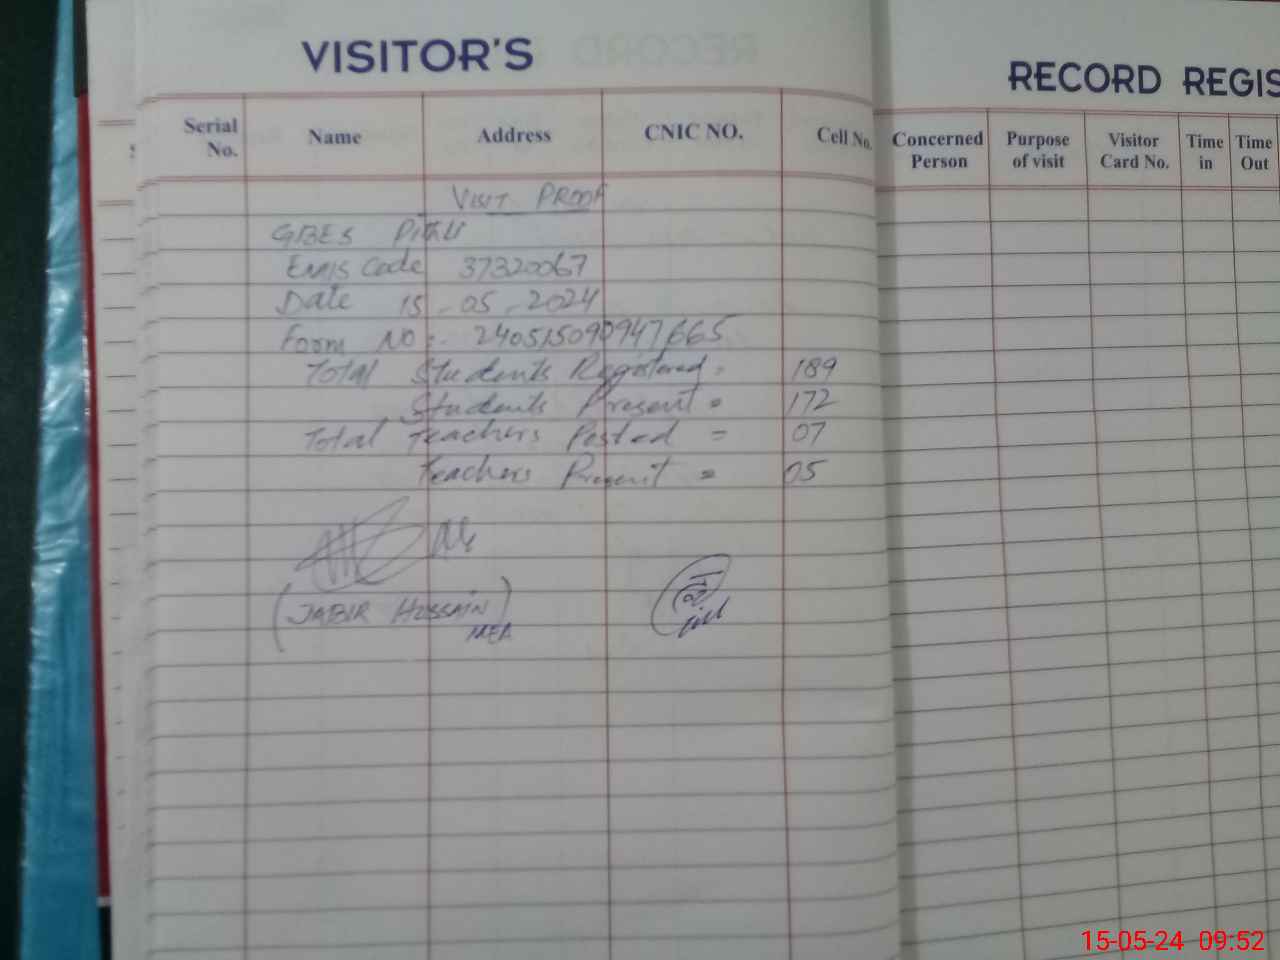 VISITOR'S RECORD REGIS
Serial No. Name Address CNIC NO. Cell No. Concerned Person Purpose of visit Visitor Card No. Time in Time Out
VISIT PROOF
GBES
EMIS Code 37320067
Date 15-05-2024
Form NO:- 240515090947665
Total Students Registered = 189
Students Present = 172
Total Teachers Posted = 07
Teachers Present = 05
(JABIR HUSSAIN)
MEA
15-05-24 09:52